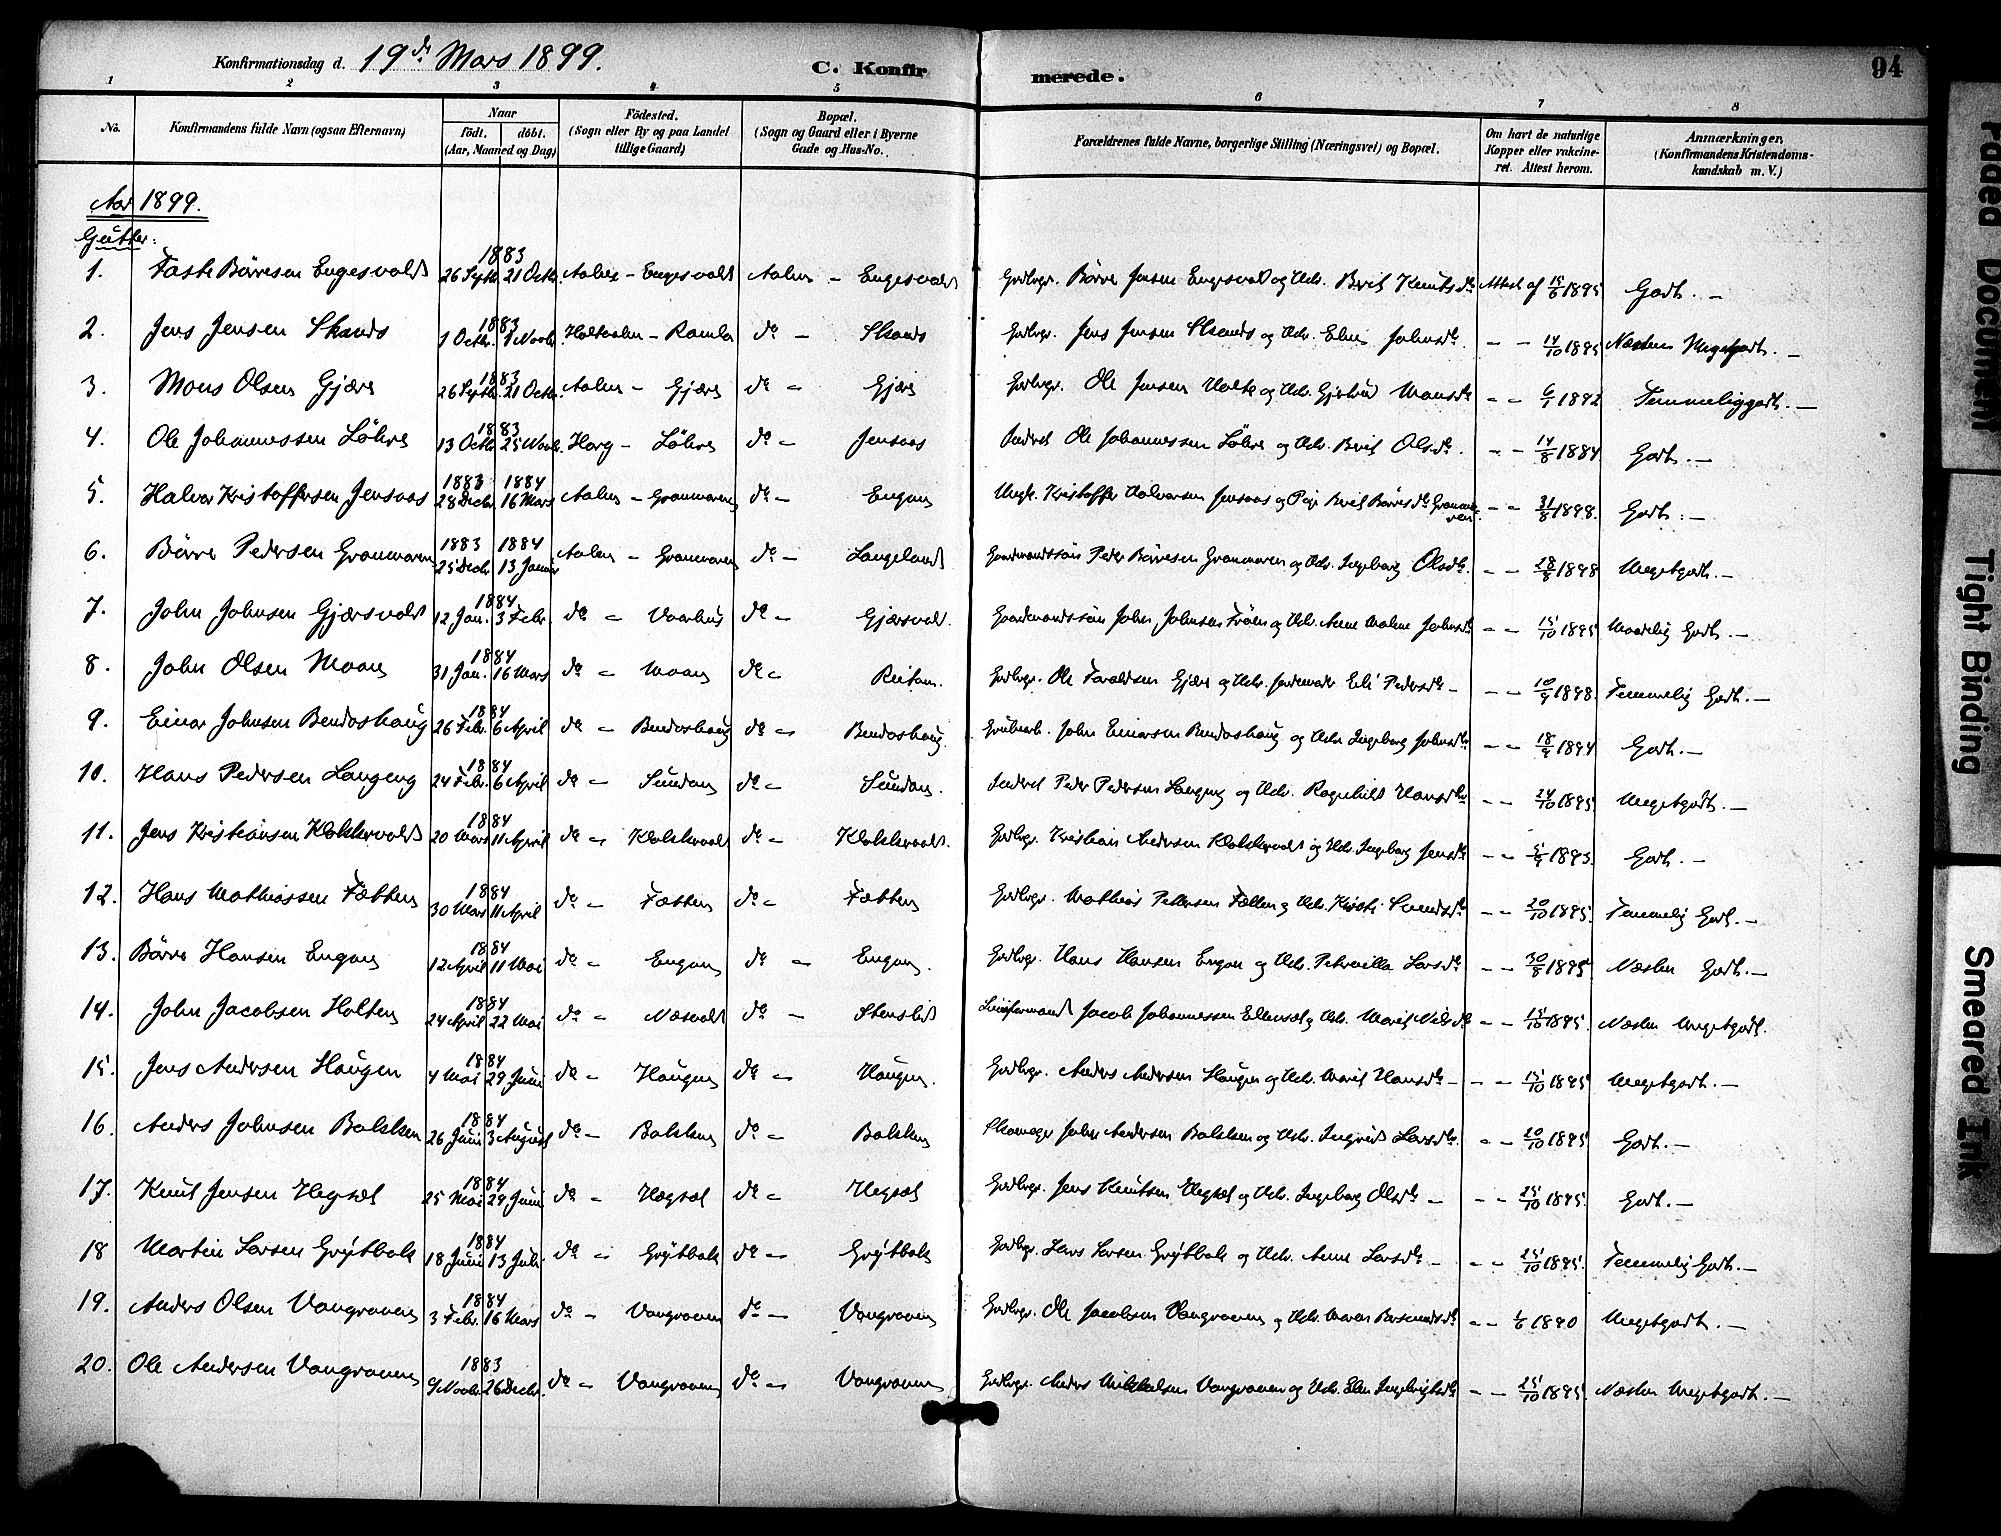 Konfirmationsdag d. 19de Mars 1899.
C. Konfir merede. 94
1 2 3 4 5 6 7 8
No. Konfirmandens fulde Navn (ogsaa Efternavn) Naar födt. döbt. (Aar, Maaned og Dag) Födested. (Sogn eller By og paa Landet tillige Gaard) Bopæl. (Sogn og Gaard eller i Byerne Gade og Hus-No. Forældrenes fulde Navne, borgerlige Stilling (Næringsvei) og Bopæl. Om havt de naturlige Kopper eller vakcineret. Attest herom. Anmærkninger, (Konfirmandens Kristendomskundskab m. V.)
Aar 1899.
Gutter:
1. Börresen Engesvold 1883 26 Septbr. 21 Octbr. Aalen - Engesvold Aalen - Engesvold Gdbrgr. Börre Jensen Engesvold og Hstr. Berit Knutsdr. Attest af 15/6 1895 Godt. -
2. Jens Jensen Skaads 1883 1 Octbr. 1 Novbr. Holtaalen - Ramlo do - Skaads Gdbrgr. Jens Jensen Skaads og Hstr. Elen Johnsdr. - - 14/10 1895 Næsten Megetgodt. -
3. Mons Olsen Gjære 1883 26 Septbr. 21 Octbr. Aalen - Gjære do - Gjære Gdbrgr. Ole Jensen Holte og Hstr. Gjertrud Monsdr. - - 6/1 1892 Temmeliggodt. -
4. Ole Johannessen Löhre 1883 13 Octbr. 25 Novbr. Horg - Löhre do - Jensaas Inderst Ole Johannessen Löhre og Hstr. Berit Olsdr. - - 14/8 1884 Godt. -
5. Halvor Kristoffersen Jensaas 1883 1884 28 Decbr. 16 Mars Aalen - Granmoren do - Engan Ungk. Kristoffer Halvorsen Jensaas og Pige Berit Börresdr. Granmoren - - 31/8 1898. Godt. -
6. Börre Pedersen Granmoren 1883 1884 25 Decbr. 13 Januar Aalen - Granmoren do - Langeland Gaardmandssön Peder Börresen Granmoren og Hstr. Ingeborg Olsdr. - - 28/8 1898 Megetgodt. -
7. John Johnsen Gjærsvold 1884 12 Jan. 3 Febr. do - Vaarhus do - Gjærsvold. Gaardmandssön John Johnsen Tröen og Hstr. Anne Malene Johnsdr. - - 15/10 1895 Maadelig Godt. -
8. John Olsen Moan 1884 31 Jan. 16 Mars do - Moan do - Reitan. Gdbrgr. Ole Taraldsen Gjære og Hstr. Eli Pedersdr. - - - 10/9 1898. Temmelig Godt. -
9. Einar Johnsen Bendoshaug 1884 26 Febr. 6 April do - Bendoshaug do - Bendoshaug. Grubearb. John Einarsen Bendoshaug og Hstr. Ingeborg Johnsdr. - - 18/9 1894 Godt. -
10. Hans Pedersen Langeng 1884 24 Febr. 6 April do - Sundan do - Sundan. Inderst Peder Pedersen Langeng og Hstr. Ragnhild Hansdr. - - 24/10 1895 Megetgodt. -
11. Jens Kristiansen Klokkervold 1884 20 Mars 11 April do - Klokkervold do - Klokkervold. Gdbrgr. Kristian Andersen Klokkervold og Hstr. Ingeborg Jensdr. - - 5/9 1893. Godt. -
12. Hans Mathiassen Tætten 1884 30 Mars 11 April do - Tætten do - Tætten Gdbrgr. Mathias Pettersen Tætten og Hstr. Kirsti Svendsdr. - - 20/10 1895. Temmelig Godt. -
13. Börre Hansen Engan 1884 12 April 11 Mai do - Engan do - Engan. Gdbrgr. Hans Hansen Engan og Hstr. Petronilla Larsdr. - - 30/8 1895 Næsten Godt. -
14. John Jacobsen Holten 1884 24 April 22 Mai do - Næsvold do - Stenslid Jacob Johannessen Ellensæt og Hstr. Marit Nilsdr. - - 15/10 1895. Næsten Megetgodt.
15. Jens Andersen Haugen 1884 4 Mai 29 Juni do - Haugen do - Haugen. Gdbrgr. Anders Andersen Haugen og Hstr. Marit Hansdr. - - - 15/10 1895 Megetgodt. -
16. Anders Johnsen Bakken 1884 26 Juni 3 August do - Bakken do - Bakken Skomager John Andersen Bakken og Hstr. Ingrid Larsdr. - - 20/10 1895 Godt. -
17. Knut Jensen Hegset 1884 25 Mai 29 Juni do - Hegset do - Hegset Gdbrgr. Jens Knutsen Hegset og Hstr. Ingeborg Olsdr. - - - 25/10 1895. Godt. -
18 Martin Larsen Grytbak 1884 18 Juni 13 Juli do - Grytbak do - Grytbak Gdbrgr. Lars Larsen Grytbak og Hstr. Anne Larsdr. - - - 25/10 1895. Temmelig Godt. -
19. Anders Olsen Vongraven 1884 3 Febr. 16 Mars do - Vongraven do - Vongraven Gdbrgr. Ole Jacobsen Vongraven og Hstr. Maren Rasmusdr. - - 1/6 1890 Megetgodt. -
20. Ole Andersen Vongraven 1883 9 Novbr. 26 Decbr. do - Vongraven do - Vongraven Gdbrgr. Anders Mikkelsen Vongraven og Hstr. Elen Ingebrigtsdr. - - 25/10 1895 Næsten Megetgodt. -
Faded Document
Tight Binding
Smeared Ink